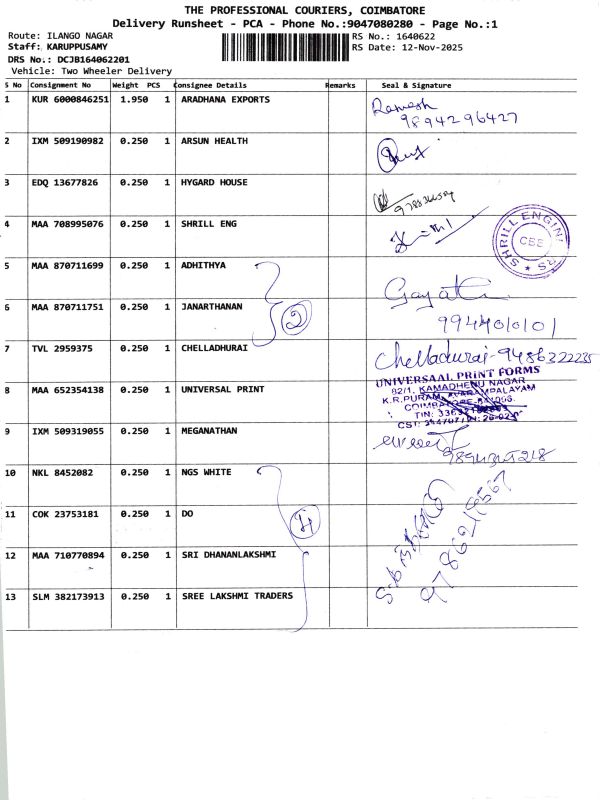 THE PROFESSIONAL COURIERS, COIMBATORE
Delivery Runsheet - PCA - Phone No.:9047080280 - Page No.:1
Route: ILANGO NAGAR
RS No.: 1640622
Staff: KARUPPUSAMY
RS Date: 12-Nov-2025
DRS No.: DCJB164062201
Vehicle: Two Wheeler Delivery
S No Consignment No Weight PCS Consignee Details Remarks Seal & Signature
1 KUR 6000846251 1.950 1 ARADHANA EXPORTS
Ramesh
9894296427
2 IXM 509190982 0.250 1 ARSUN HEALTH
3 EDQ 13677826 0.250 1 HYGARD HOUSE
4 MAA 708995076 0.250 1 SHRILL ENG
SHRILL ENGIN RS ★
CBE
5 MAA 870711699 0.250 1 ADHITHYA
6 MAA 870711751 0.250 1 JANARTHANAN
2
Gayat
994400101
7 TVL 2959375 0.250 1 CHELLADHURAI
Chelladurai - 9486322235
8 MAA 652354138 0.250 1 UNIVERSAL PRINT
UNIVERSAAL PRINT FORMS
82/1, KAMADHENU NAGAR
K.R.PURAM, AVARAMPALAYAM
COIMBATORE-641006.
TIN:
CST:
9 IXM 509319055 0.250 1 MEGANATHAN
10 NKL 8452082 0.250 1 NGS WHITE
11 COK 23753181 0.250 1 DO
4
12 MAA 710770894 0.250 1 SRI DHANANLAKSHMI
13 SLM 382173913 0.250 1 SREE LAKSHMI TRADERS